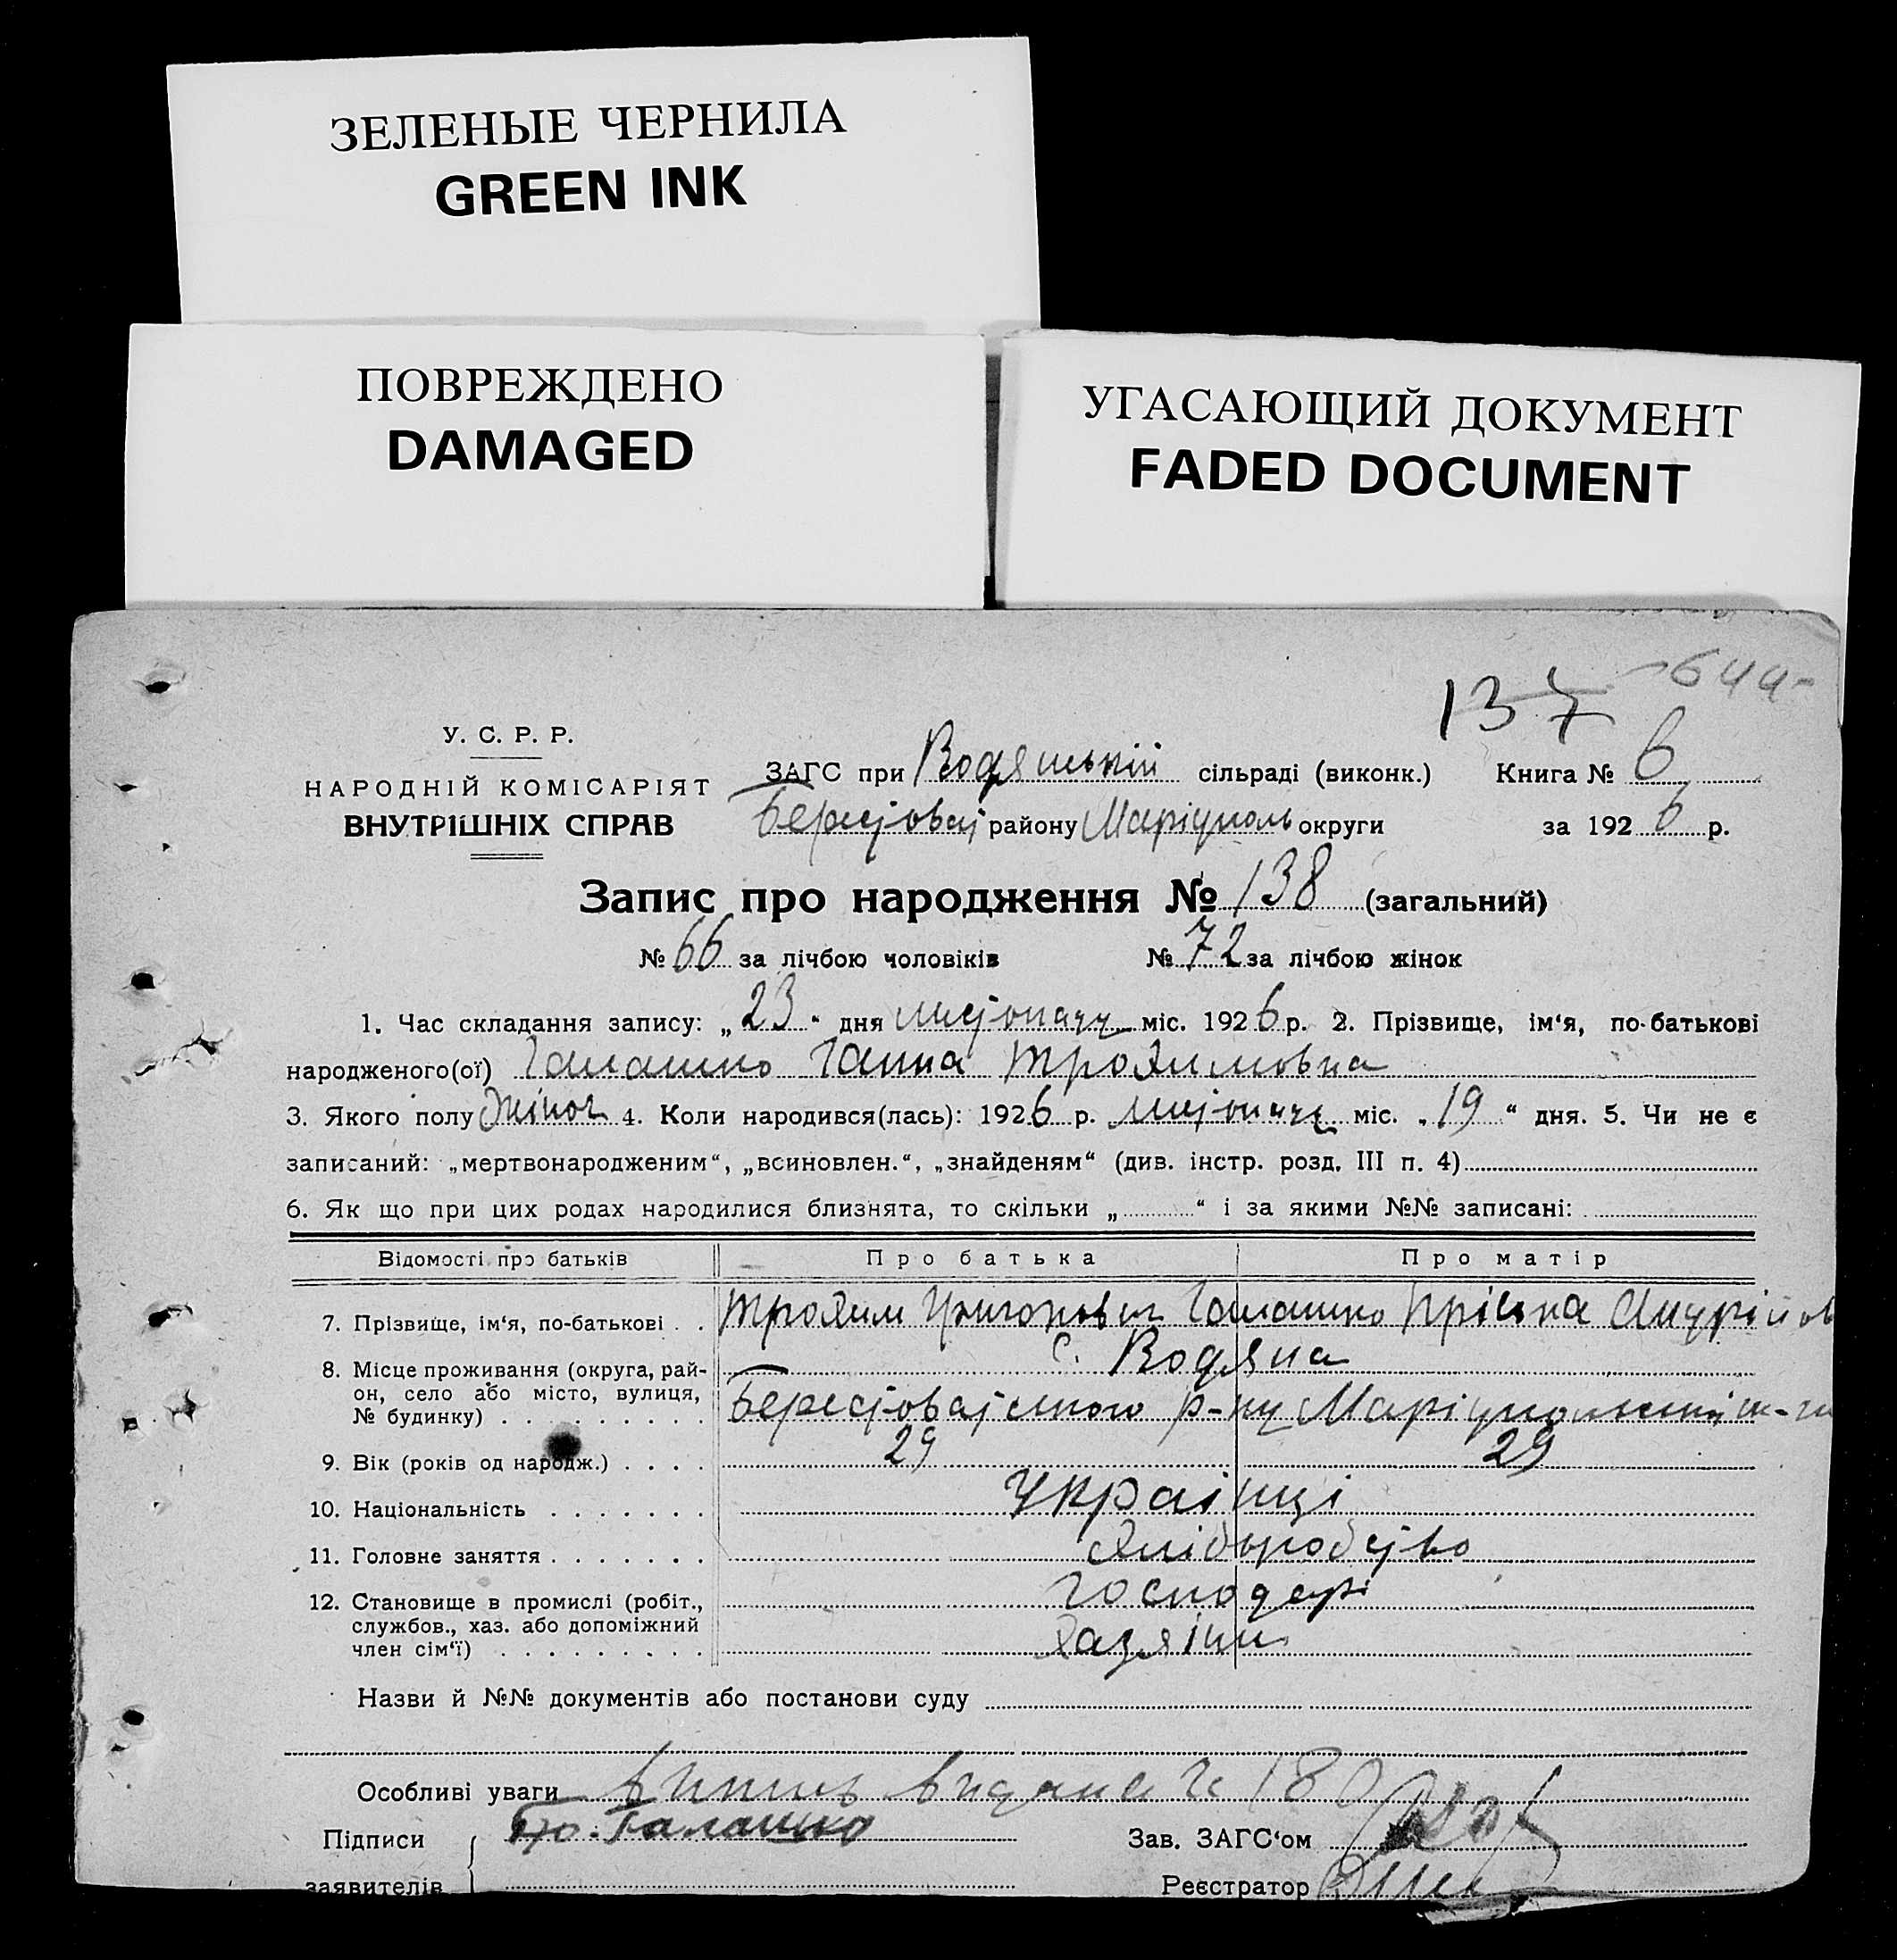 ЗЕЛЕНЫЕ ЧЕРНИЛА
GREEN INK
ПОВРЕЖДЕНО
DAMAGED
УГАСАЮЩИЙ ДОКУМЕНТ
FADED DOCUMENT
137
У. С. Р. Р.
НАРОДНІЙ КОМІСАРІЯТ
ВНУТРІШНІХ СПРАВ
ЗАГС при Водянській сільраді (виконк.) Книга № 6
Берестоват району Маріуполь округи за 1926 р.
Запис про народження № 138 (загальний)
№ 66 за лічбою чоловіків № 72 за лічбою жінок
1. Час складання запису: „23“ дня листопаду міс. 1926 р. 2. Прізвище, ім‘я, по-батькові
народженого(ої) Галашко Ганна Трохимовна
3. Якого полу Жіноч 4. Коли народився(лась): 1926 р. листопаду міс. „19“ дня. 5. Чи не є
записаний: „мертвонародженим“, „всиновлен.“, „знайденям“ (див. інстр. розд. III п. 4)
6. Як що при цих родах народилися близнята, то скільки „ “ і за якими №№ записані:
Відомості про батьків Про батька Про матір
7. Прізвище, ім‘я, по-батькові . . Трохим Григорович Галашко Пріська
8. Місце проживання (округа, рай- с. Водяна
он, село або місто, вулиця,
№ будинку) . . . . . . . . . Берестоватського р-ну Маріупольської
9. Вік (років од народж.) . . . . 29 29
10. Національність . . . . . . . Українці
11. Головне заняття . . . . . . . Хліборобство
12. Становище в промислі (робіт., господарі
службов., хаз. або допоміжний
член сім‘ї) . . . . . . . . . Хазяіни
Назви й №№ документів або постанови суду
Особливі уваги випись видана № 180
Підписи Галашко Зав. ЗАГС‘ом
заявителів Реєстратор